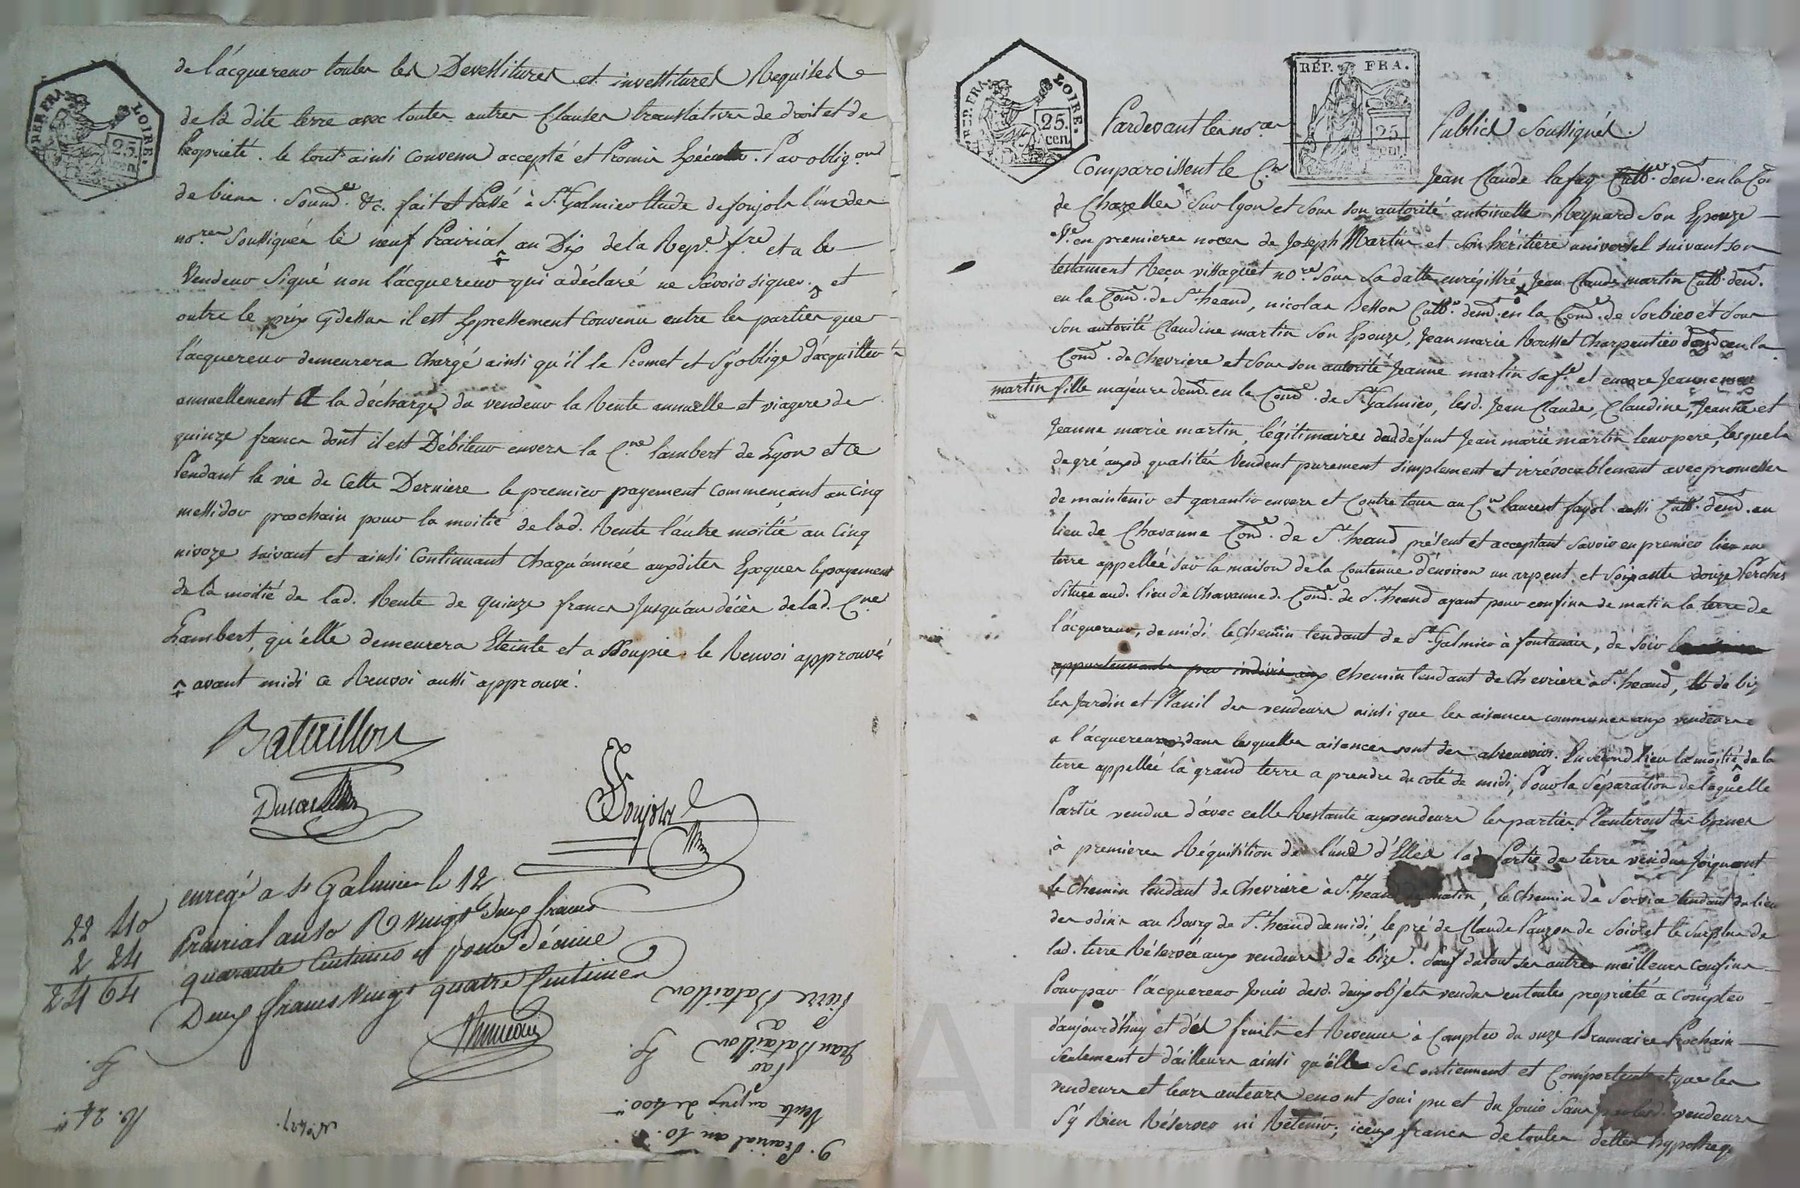 de l'acquereur toutes les Devestitures et investitures Requises
de la dite terre avec toutes autres Clauses translatives de droit et de
Propriété. le tout ainsi convenu accepté et Promis Par oblig.on
de biens. Soum.on &c. fait et Passé à St. Galmier Etude de fonjols l'un des
no.res Soussignés le neuf Prairial an Dix de la Rep.e f.se et a le
Vendeur Signé non l'acquereur qui a déclaré ne Savoir signer. et
outre le prix Cydessus il est Expressement convenu entre les parties que
l'acquereur demeurera Chargé ainsi qu'il le Promet et S'y oblige d'acquitter
annuellement à la décharge du vendeur la Rente annuelle et viagere de
quinze francs dont il est Débiteur envers la C.ne Lambert de Lyon et ce
Pendant la vie de Cette Derniere le premier payement Commençant au Cinq
messidor prochain pour la moitié de lad. Rente l'autre moitié au Cinq
nivoze suivant et ainsi Continuant Chaqu'année auxdites Epoques le payement
de la moitié de lad. Rente de quinze francs Jusqu'au décès de lad. C.ne
Lambert, qu'elle demeurera Eteinte et assoupie. le Renvoi approuvé
avant midi ce Renvoi aussi approuvé.
Bataillon
Fonjols
enregé a St Galmier le 12
Prairial an 10 R vingt deux francs
quarante Centimes et pour décime
Deux francs vingt quatre Centimes
22 40
2 24
24 64
Pierre Bataillon
à
Jean Bataillon
Par
Vente au prix de 400.
9. Prairial an 10.
REP. FRA.
LOIRE.
25.
cen.
REP. FRA.
LOIRE.
25.
cen.
RÉP. FRA.
25
cen
Pardevant les no.res Publics Soussignés.
Comparoissent le C.en Jean Claude lafay Cult.r dem.t en la Com.
de Chazelles Sur Lyon et Sous son autorité antoinette Reynard Son Epouze
V.e en premieres noces de Joseph Martin et Son héritiere universel suivant son
testament Reçu no.re Sous Sa datte enrégistré, Jean Claude martin Cult. dem.t
en la Com.e de St. heand, nicolas Besson Cult.r dem.t en la Com.e de Sorbier et Sous
son autorité Claudine martin Son Epouze, Jean marie Rousset Charpentier dem.t en la
Com.e de Chevriere et Sous son autorité Jeanne martin Sa f.e et encore Jeanne
martin fille majeure dem.t en la Com.e de St. Galmier, lesd. Jean Claude, Claudine, Jeanne et
Jeanne marie martin, légitimaires dud défunt Jean marie martin leur pere, lesquels
de gré auxd qualités Vendent purement simplement et irrévocablement avec promesses
de maintenir et garantir envers et Contre tous au C.en laurent fayol aussi Cult. dem.t au
lieu de Chavanne Com.e de St. heand présent et acceptant Savoir en premier lieu une
terre appellée Sur la maison de la Contenue d'environ un arpent et Soixante douze Perches
Située aud. lieu de Chavanne d. Com.e de St. heand ayant pour confins de matin la terre de
l'acquereur, de midi le Chemin tendant de St. Galmier à fontanès, de Soir
Chemin tendant de Chevriere à St. heand, et de bize
les Jardin et Plasil des vendeurs ainsi que les aisances communes aux vendeurs
a l'acquereur, dans lesquelles aisances sont des abreuvoirs. En second lieu la moitié de la
terre appellée la grand terre a prendre du coté de midi, Pour la Séparation de laquelle
Partie vendue d'avec celle Restante aux vendeurs les parties Planteront des bornes
à premiere Réquisition de l'une d'Elles lad. Partie de terre vendue Joignant
le Chemin tendant de Chevriere à St. heand de matin, le Chemin de Servia tendant du lieu
des odins au Bourg de St. heand de midi, le pré de Claude Pauzon de Soir et le Surplus de
lad. terre Réservée aux vendeurs de bize. Sauf du tout ses autres meilleurs confins
Pour par l'acquereur Jouir desd. deux objets vendus en toutes propriété a compter
d'aujourd'huy et des fruits et Revenus à Compter du onze Brumaire Prochain
Seulement et d'ailleurs ainsi qu'elles Se Contiennent et Comportent et que les
vendeurs et leurs auteurs en ont Joui pu et du Jouir Sans par lesd. vendeurs
S'y Rien Réserver ni Retenir, iceux francs de toutes dettes hypotheq.